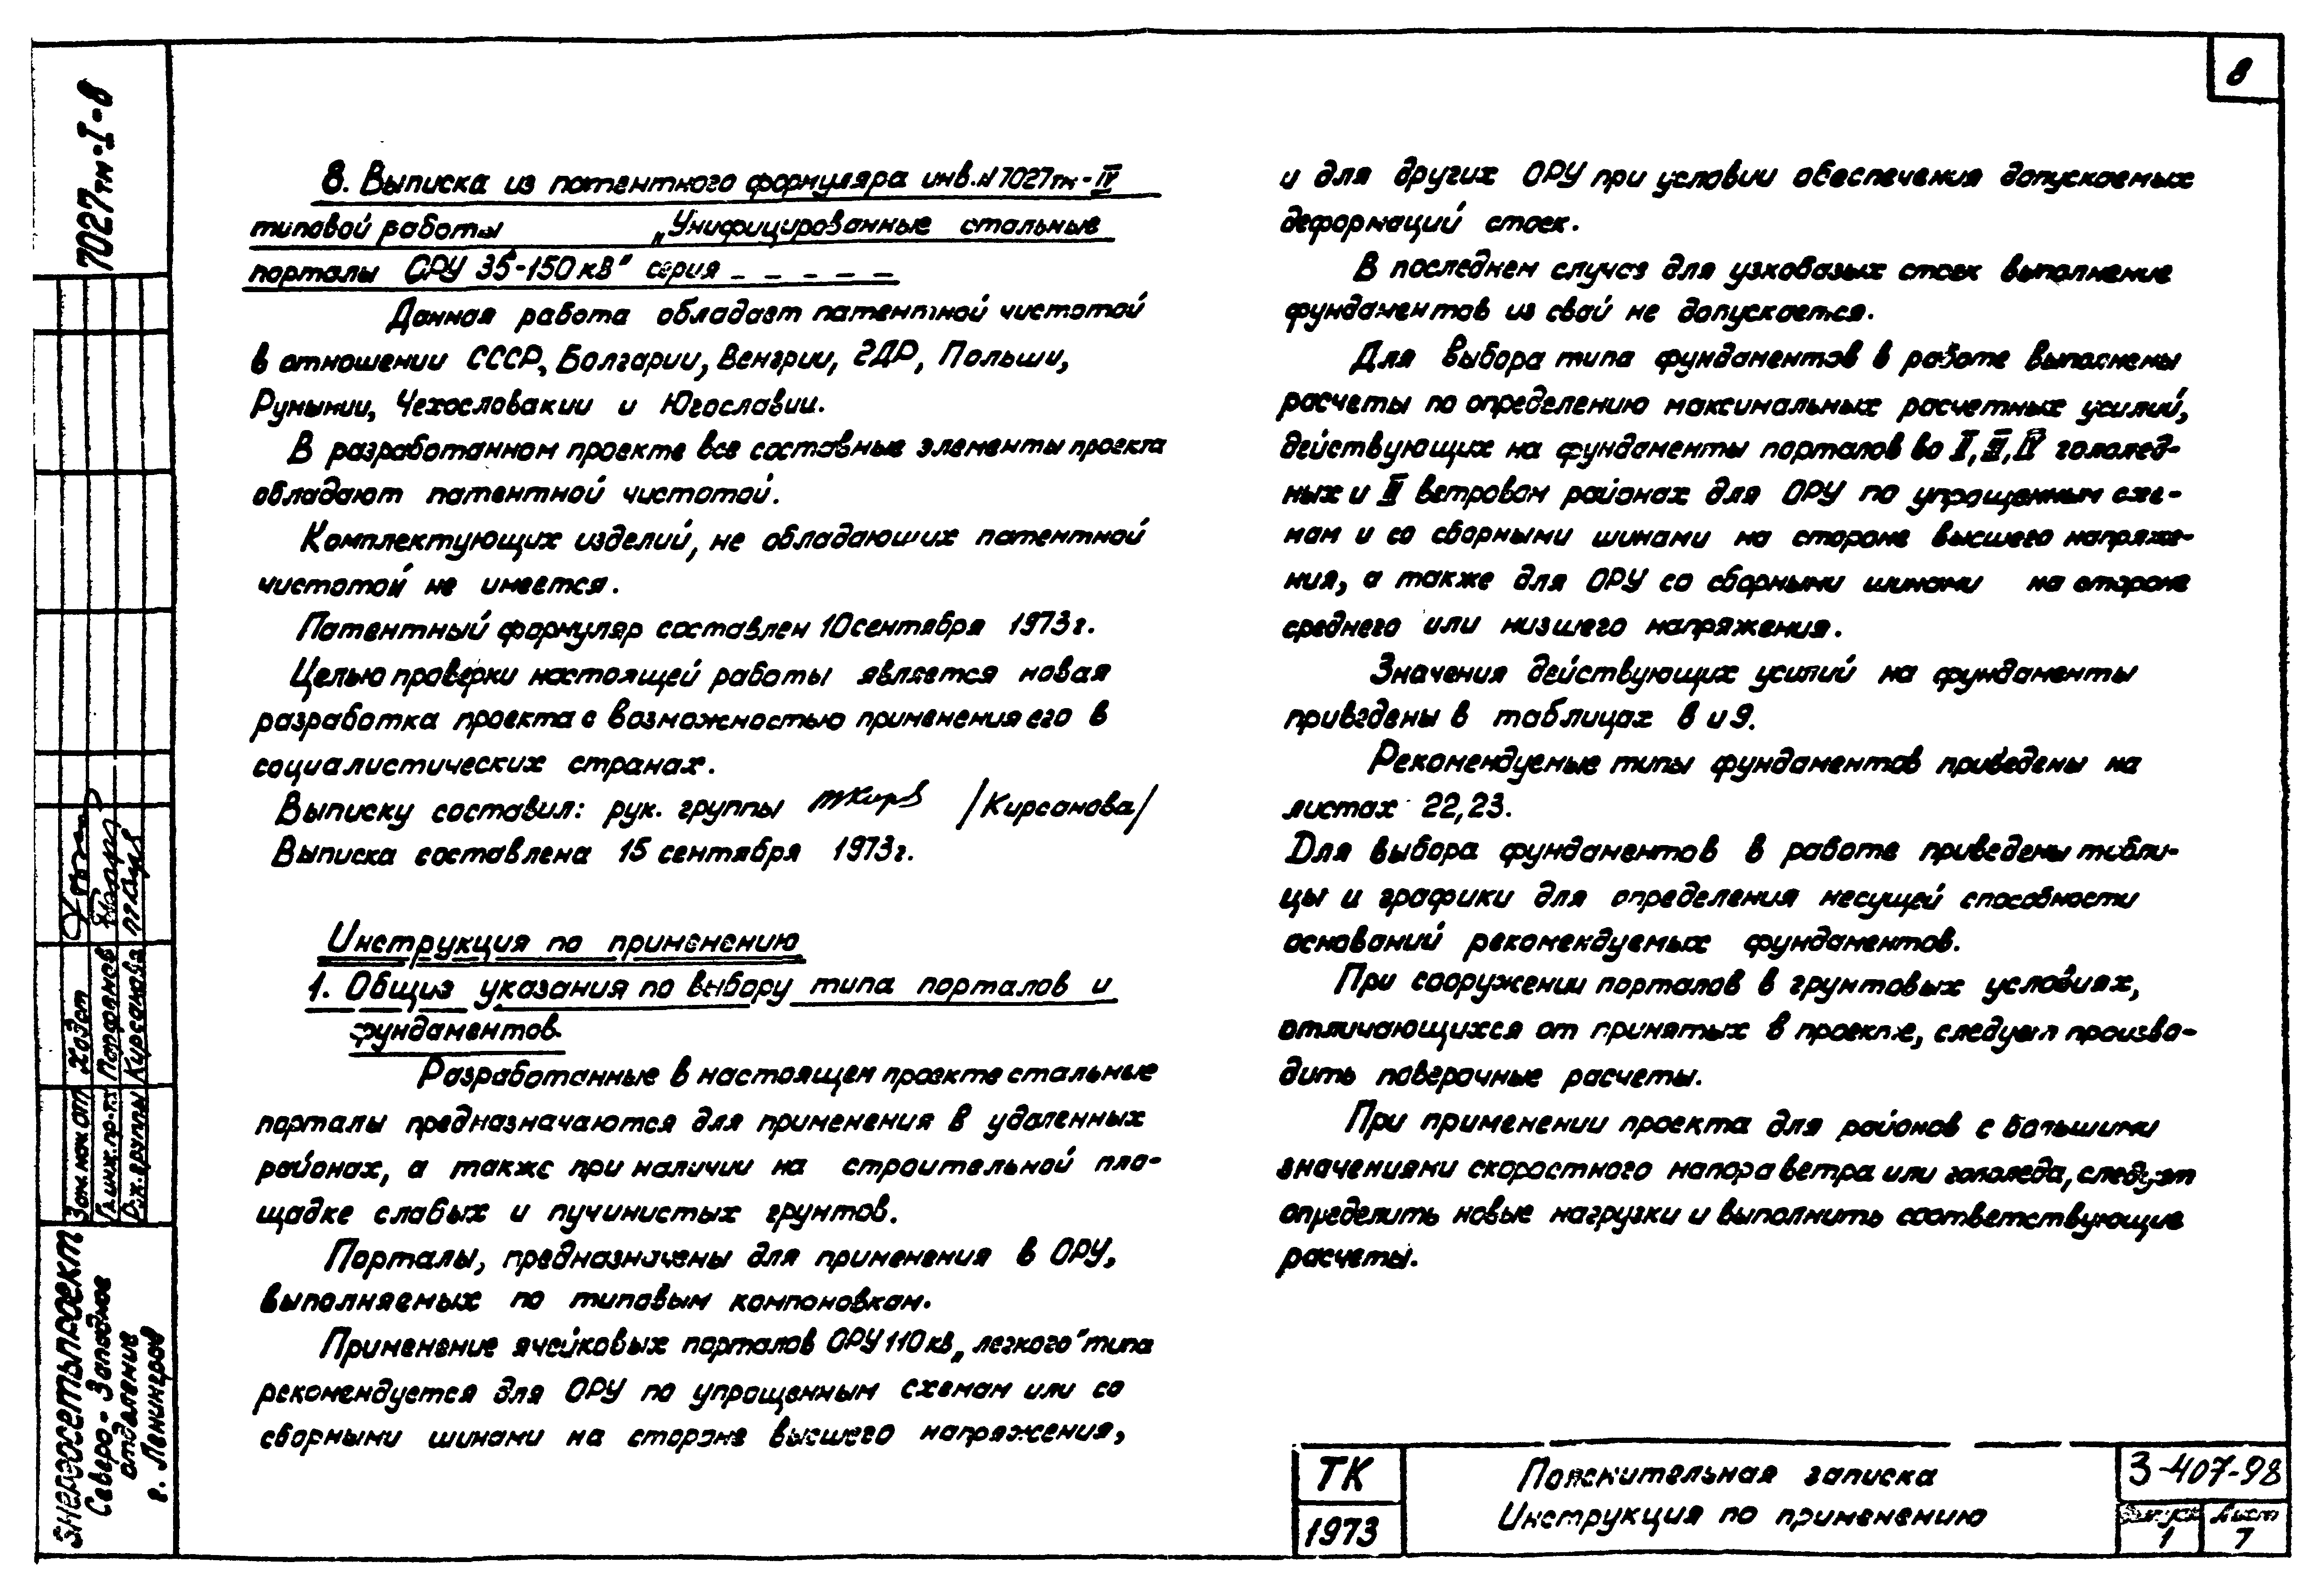 8
7027тм-I-8
8. Выписка из патентного формуляра инв.N7027тм-IV
типовой работы „Унифицированные стальные
порталы ОРУ 35-150кВ" серия – – – – –
Данная работа обладает патентной чистотой
в отношении СССР, Болгарии, Венгрии, ГДР, Польши,
Румынии, Чехословакии и Югославии.
В разработанном проекте все составные элементы проекта
обладают патентной чистотой.
Комплектующих изделий, не обладающих патентной
чистотой не имеется.
Патентный формуляр составлен 10 сентября 1973г.
Целью проверки настоящей работы является новая
разработка проекта с возможностью применения его в
социалистических странах.
Выписку составил: рук. группы /Кирсанова/
Выписка составлена 15 сентября 1973г.
Инструкция по применению
1. Общие указания по выбору типа порталов и
фундаментов.
Разработанные в настоящем проекте стальные
порталы предназначаются для применения в удаленных
районах, а также при наличии на строительной пло-
щадке слабых и пучинистых грунтов.
Порталы, предназначены для применения в ОРУ,
выполняемых по типовым компоновкам.
Применение ячейковых порталов ОРУ 110 кВ „легкого" типа
рекомендуется для ОРУ по упрощенным схемам или со
сборными шинами на стороне высшего напряжения,
и для других ОРУ при условии обеспечения допускаемых
деформаций стоек.
В последнем случае для узкобазых стоек выполнение
фундаментов из свай не допускается.
Для выбора типа фундаментов в работе выполнены
расчеты по определению максимальных расчетных усилий,
действующих на фундаменты порталов во II, III, IV гололед-
ных и III ветровом районах для ОРУ по упрощенным схе-
мам и со сборными шинами на стороне высшего напряже-
ния, а также для ОРУ со сборными шинами на стороне
среднего или низшего напряжения.
Значения действующих усилий на фундаменты
приведены в таблицах 8 и 9.
Рекомендуемые типы фундаментов приведены на
листах 22,23.
Для выбора фундаментов в работе приведены табли-
цы и графики для определения несущей способности
оснований рекомендуемых фундаментов.
При сооружении порталов в грунтовых условиях,
отличающихся от принятых в проекте, следует произво-
дить поверочные расчеты.
При применении проекта для районов с большими
значениями скоростного напора ветра или гололеда, следует
определить новые нагрузки и выполнить соответствующие
расчеты.
Зам.нач.от Ходот
Гл.инж.пр-та Парфянов
Рук.группы Кирсанова
Энергосетьпроект
Северо-Западное
отделение
г. Ленинград
ТК
1973
Пояснительная записка
Инструкция по применению
3-407-98
Выпуск Лист
1 7